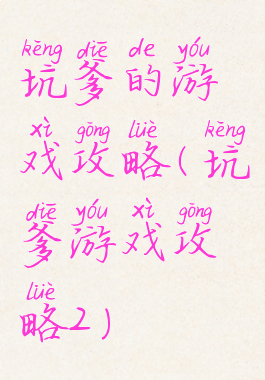 kēng diē de yóu
坑爹的游
xì gōng lüè kēng
戏攻略(坑
diē yóu xì gōng
爹游戏攻
lüè
略2)